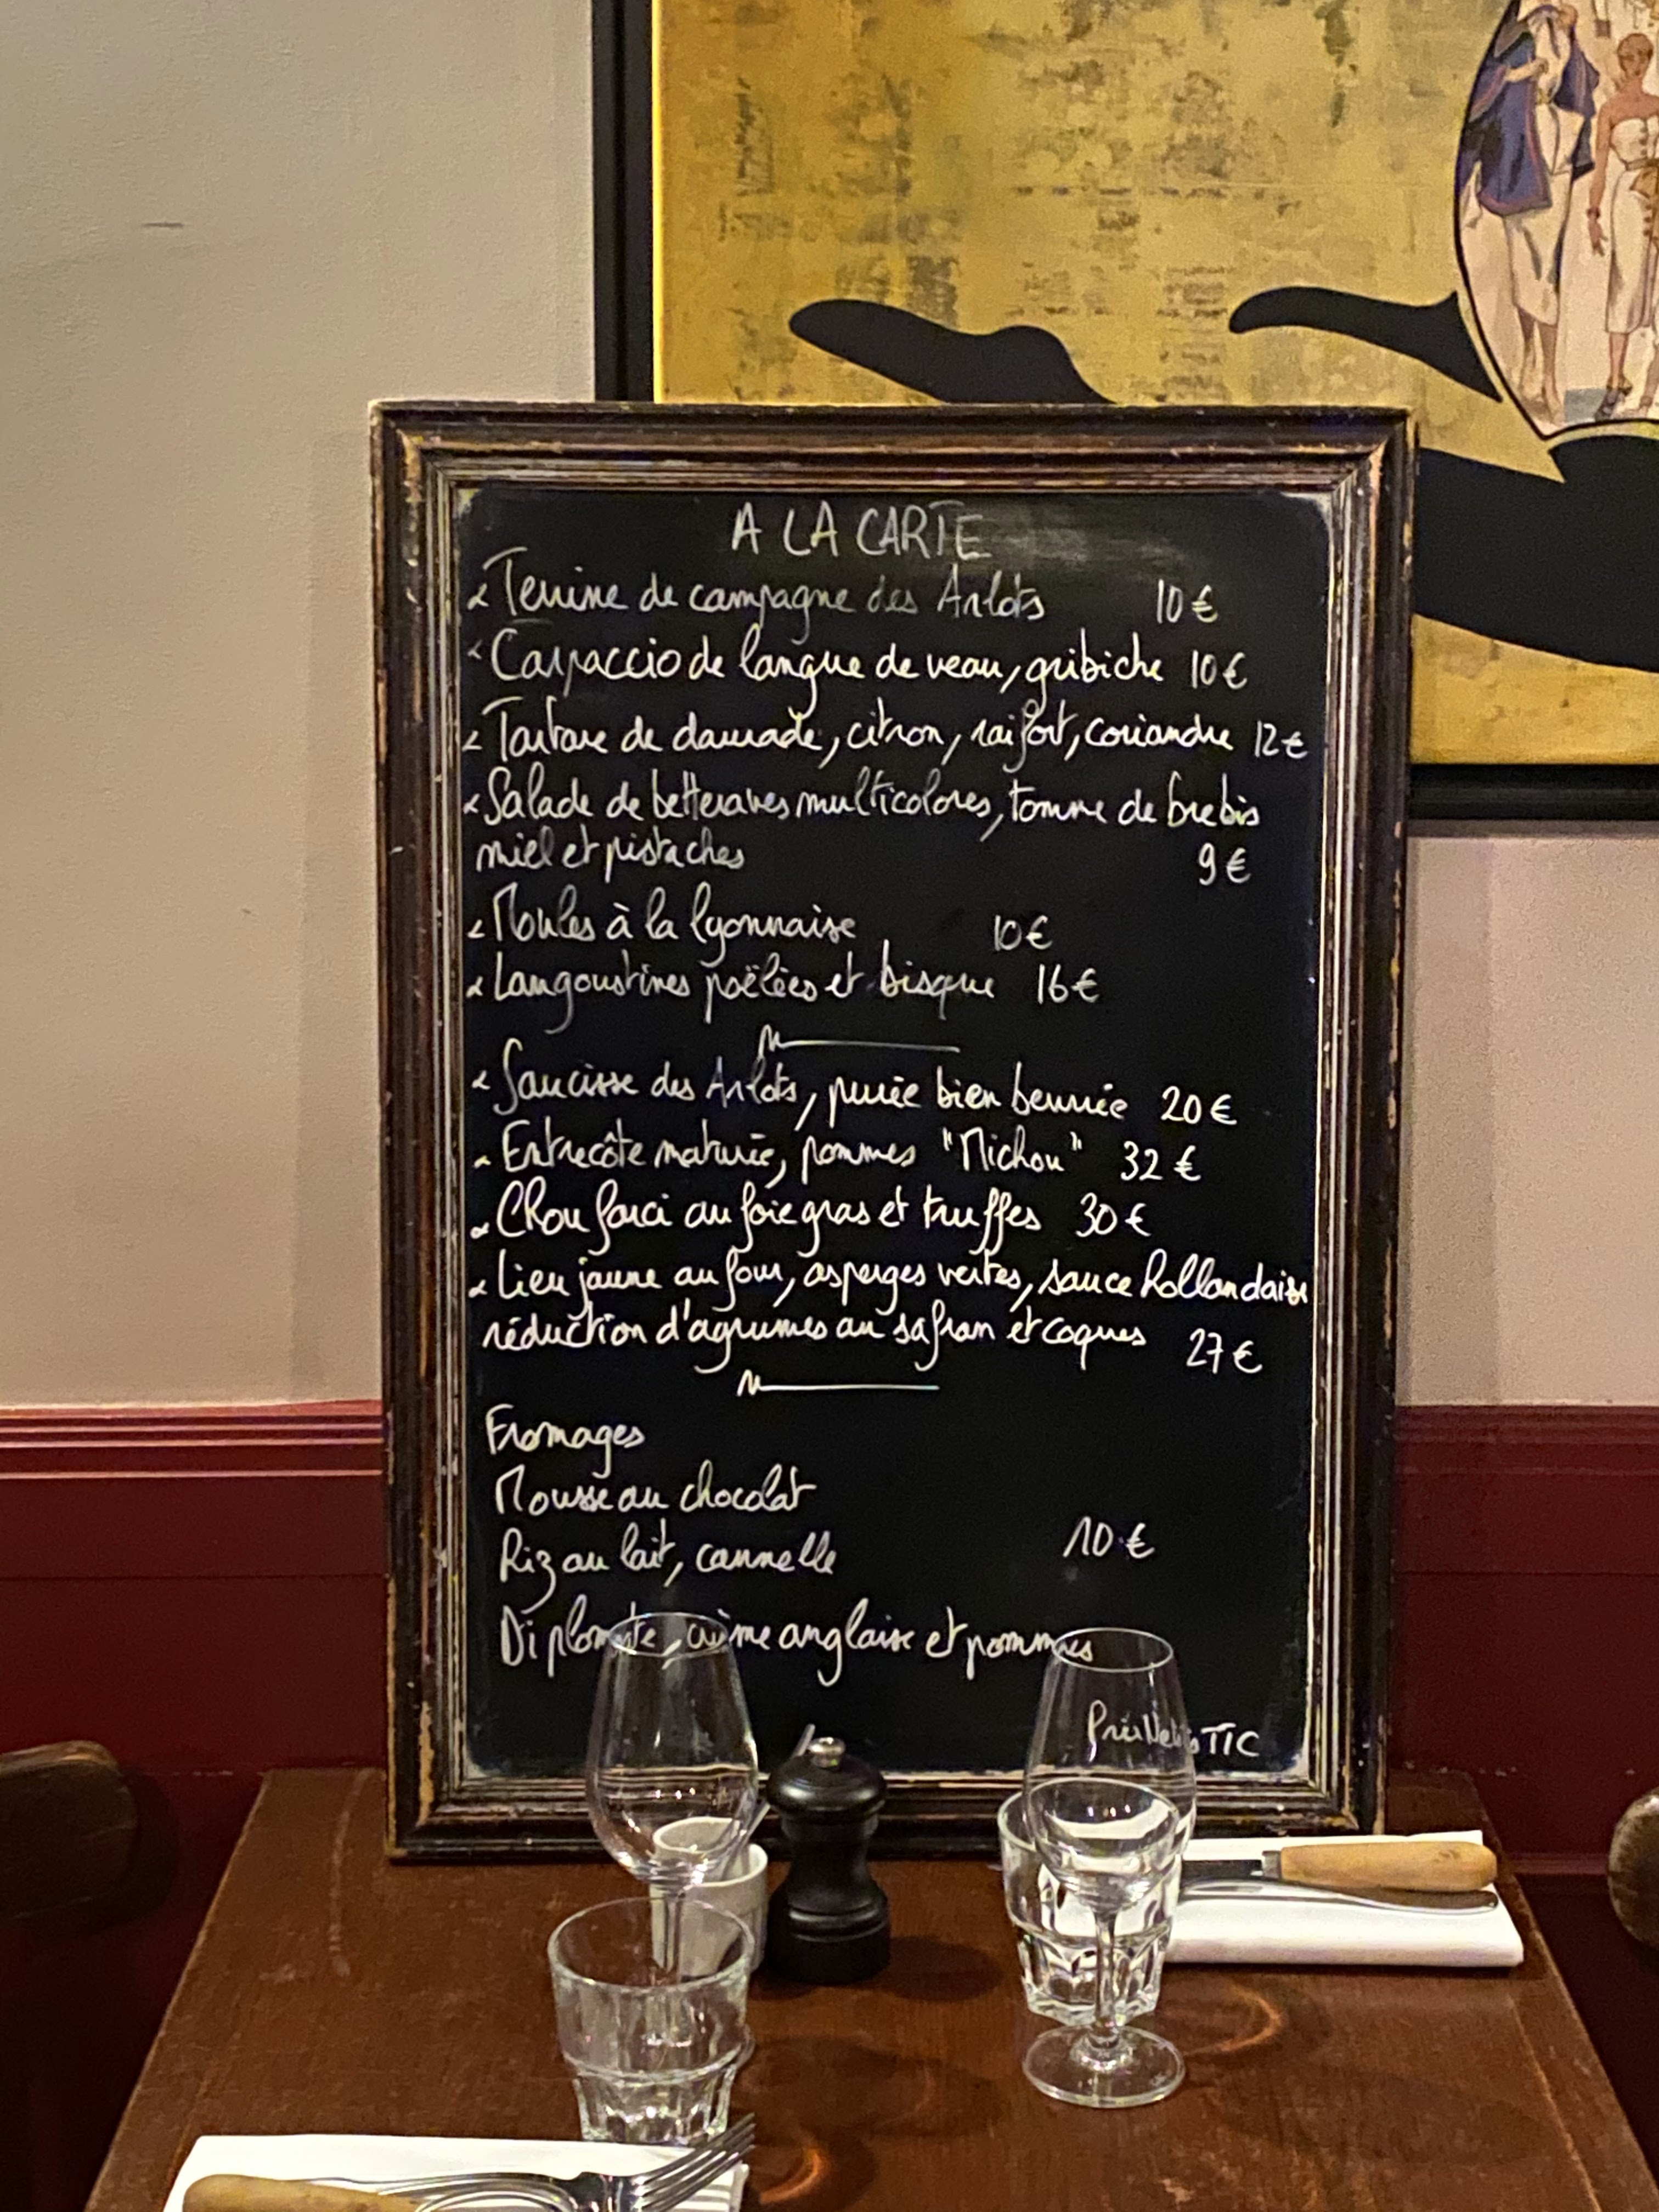 A LA CARTE
Terrine de campagne des Arlots 10€
Carpaccio de langue de veau, gribiche 10€
Tartare de daurade, citron, raifort, coriandre 12€
Salade de betteraves multicolores, tomme de brebis
miel et pistaches 9€
Moules à la lyonnaise 10€
Langoustines poëlées et bisque 16€
Saucisse des Arlots, purée bien beurrée 20€
Entrecôte maturée, pommes "Michou" 32€
Chou farci au foie gras et truffes 30€
Lieu jaune au four, asperges vertes, sauce hollandaise
réduction d'agrumes au safran et coques 27€
Fromages
Mousse au chocolat
Riz au lait, cannelle 10€
Diplomate, crème anglaise et pommes
Prix Nets TTC